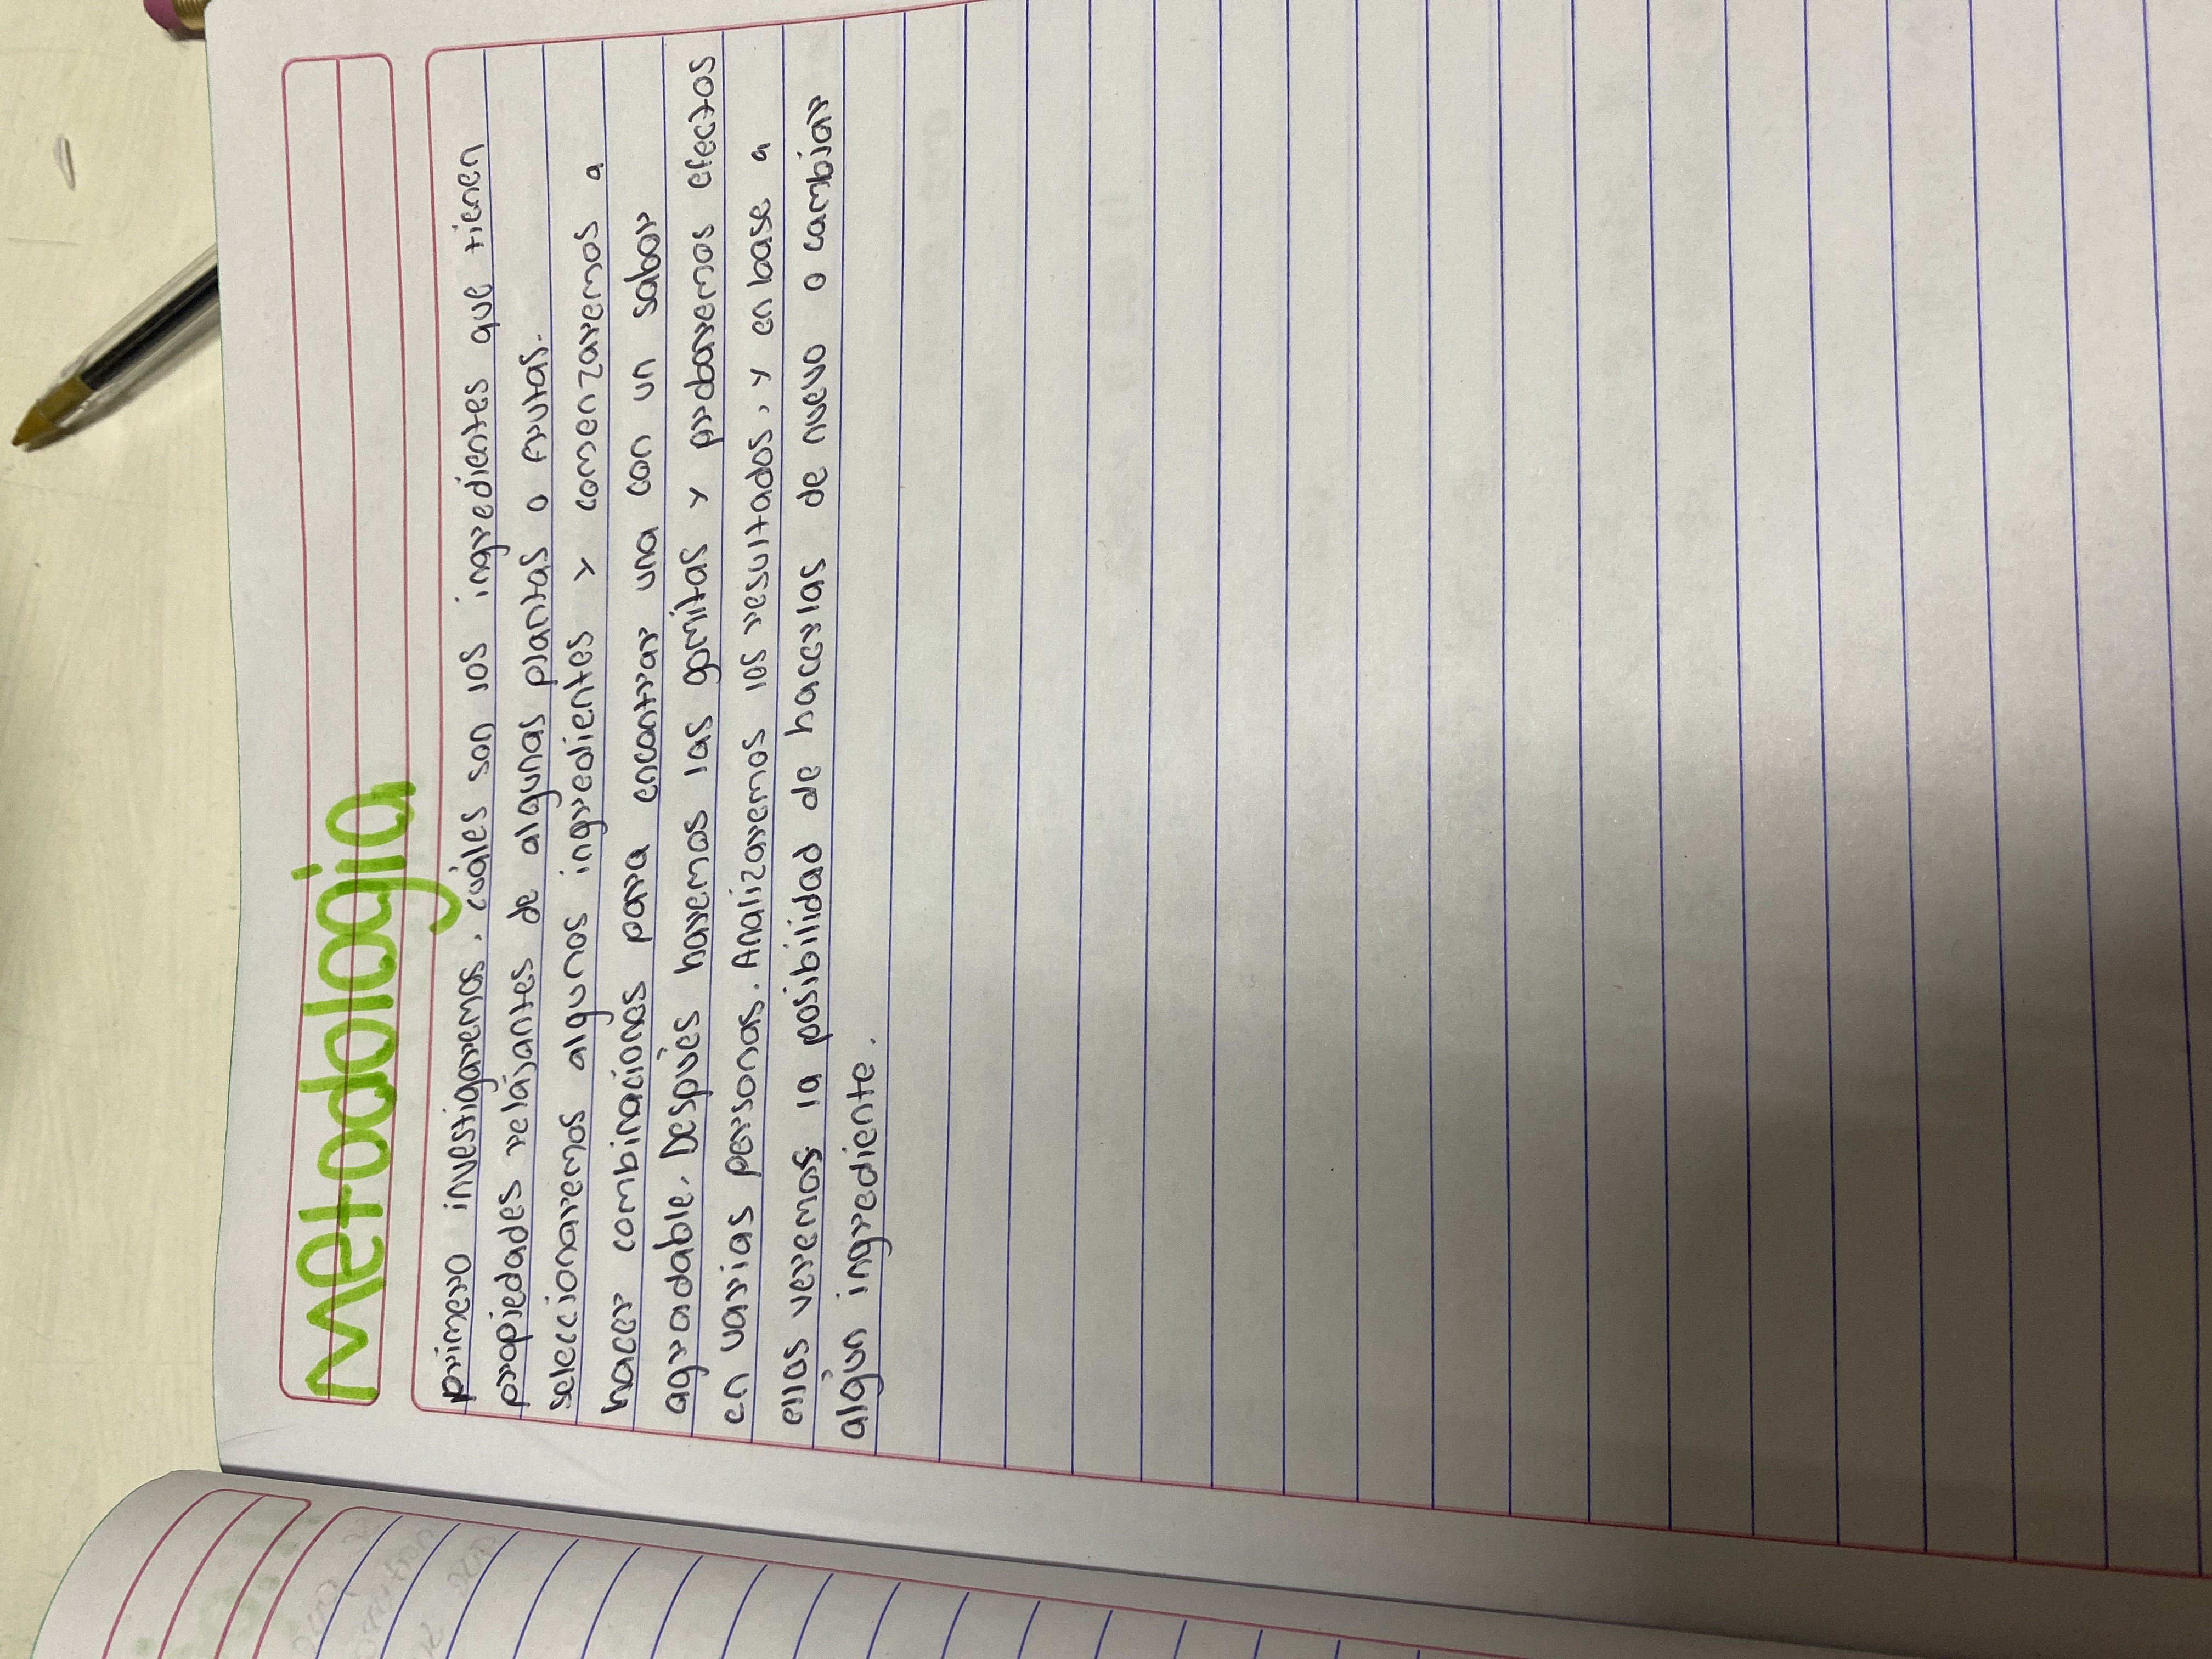 Metodologia
primero investigaremos, cuáles son los ingredientes que tienen
propiedades relajantes de algunas plantas o frutas.
seleccionaremos algunos ingredientes y comenzaremos a
hacer combinaciones para encontrar una con un sabor
agradable. Después haremos las gomitas y probaremos efectos
en varias personas. Analizaremos los resultados, y en base a
ellos veremos la posibilidad de hacerlas de nuevo o cambiar
algún ingrediente.